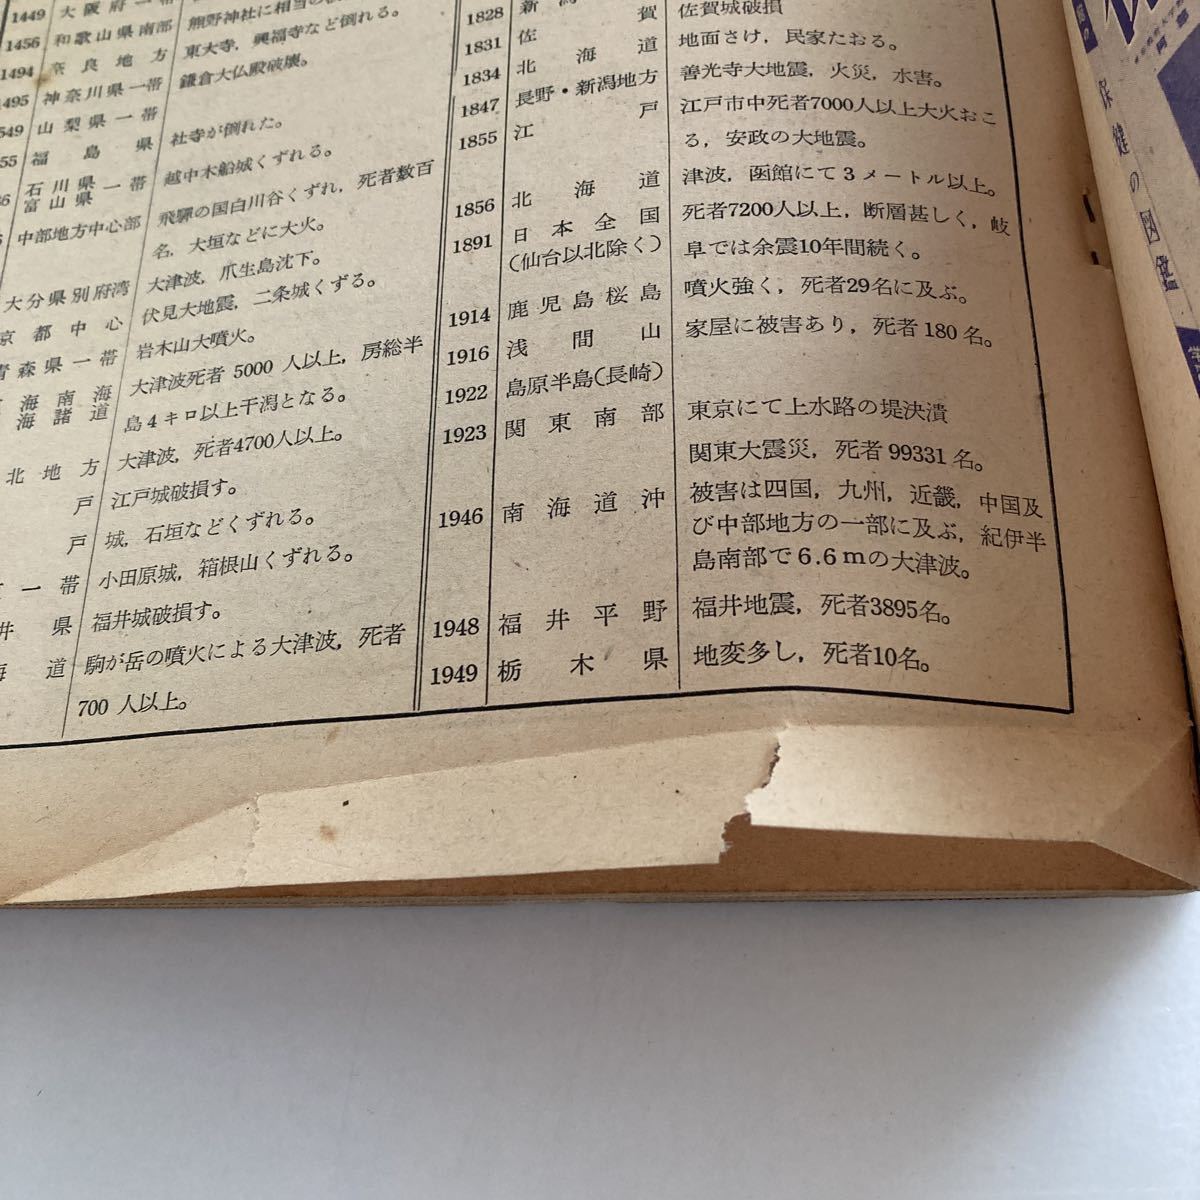 1449 大阪府一帯
1456 和歌山県南部 熊野神社に相当の
1494 奈良地方 東大寺，興福寺など倒れる。
1495 神奈川県一帯 鎌倉大仏殿破壊。
549 山梨県一帯
55 福島県 社寺が倒れた。
石川県 富山県 一帯 越中木船城くずれる。
中部地方中心部 飛驒の国白川谷くずれ，死者数百
名，大垣などに大火。
大分県別府湾 大津波，爪生島沈下。
京都中心 伏見大地震，二条城くずる。
青森県一帯 岩木山大噴火。
海南海 海諸道 大津波死者 5000 人以上，房総半
島4キロ以上干潟となる。
北地方 大津波，死者4700人以上。
戸 江戸城破損す。
戸 城，石垣などくずれる。
一帯 小田原城，箱根山くずれる。
井県 福井城破損す。
海道 駒が岳の噴火による大津波，死者
700 人以上。
1828 新潟
1831 佐賀 佐賀城破損
1834 北海道 地面さけ，民家たおる。
1847 長野・新潟地方 善光寺大地震，火災，水害。
1855 江戸 江戸市中死者7000人以上大火おこ
る，安政の大地震。
1856 北海道 津波，函館にて3メートル以上。
1891 日本全国 死者7200人以上，断層甚しく，岐
(仙台以北除く) 阜では余震10年間続く。
1914 鹿児島桜島 噴火強く，死者29名に及ぶ。
1916 浅間山 家屋に被害あり，死者180名。
1922 島原半島(長崎)
1923 関東南部 東京にて上水路の堤決潰
関東大震災，死者99331名。
1946 南海道沖 被害は四国，九州，近畿，中国及
び中部地方の一部に及ぶ，紀伊半
島南部で6.6mの大津波。
1948 福井平野 福井地震，死者3895名。
1949 栃木県 地変多し，死者10名。
保健の図鑑